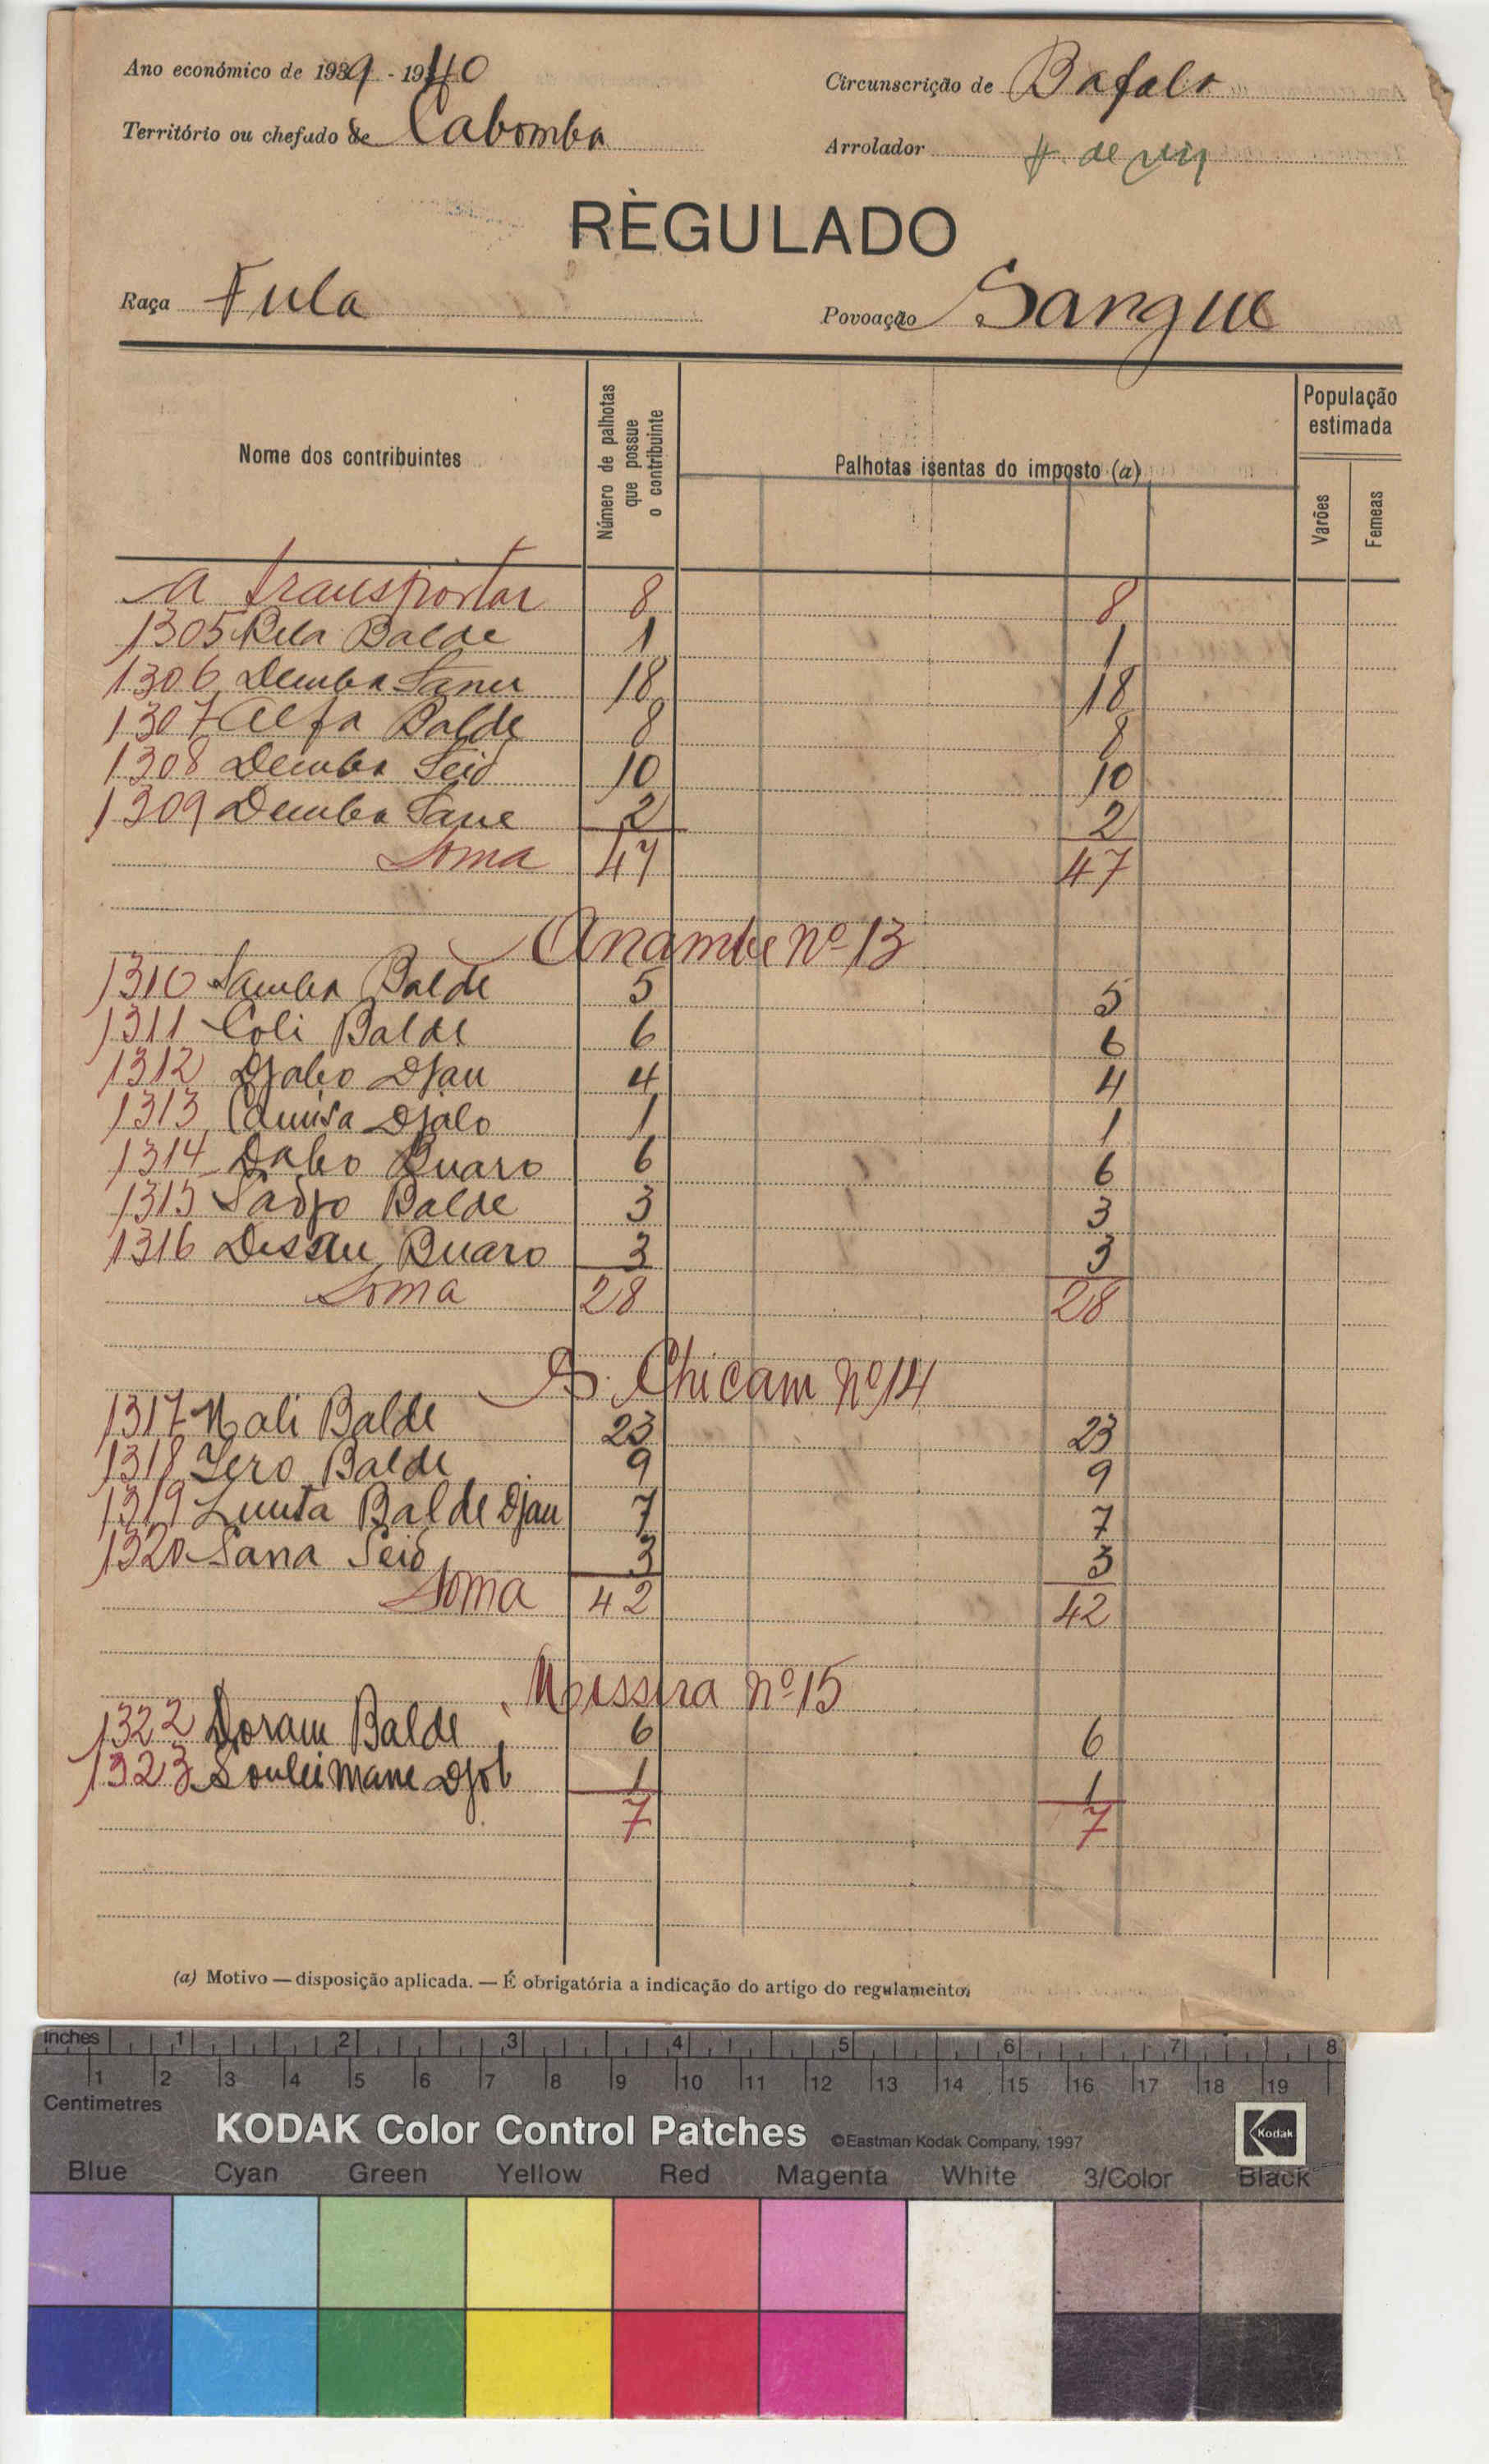 Ano económico de 1939 - 1940
Circunscrição de Bafala
Território ou chefado de Cabomba
Arrolador
RÈGULADO
Raça Fula
Povoação Sangue
Nome dos contribuintes
Número de palhotas que possue o contribuinte
Palhotas isentas do imposto (a)
População estimada
Varões
Femeas
A transportar 8 8
1305 Rela Balde 1 1
1306 Demba Saner 18 18
1307 Alfa Balde 8 8
1308 Demba Seid 10 10
1309 Demba Sane 2 2
Soma 47 47
Anambe nº 13
1310 Samba Balde 5 5
1311 Coli Balde 6 6
1312 Djabo Djau 4 4
1313 Camisa Djalo 1 1
1314 Dabo Buaro 6 6
1315 Sadjo Balde 3 3
1316 Dessau Buaro 3 3
Soma 28 28
S. Chicam nº 14
1317 Mali Balde 23 23
1318 Iero Balde 9 9
1319 Lunta Balde Djau 7 7
1320 Sana Seid 3 3
Soma 42 42
Missira nº 15
1322 Doram Balde 6 6
1323 Souleimane Djob 1 1
7 7
(a) Motivo — disposição aplicada. — É obrigatória a indicação do artigo do regulamento.
inches 1 2 3 4 5 6 7 8
1 2 3 4 5 6 7 8 9 10 11 12 13 14 15 16 17 18 19
Centimetres
KODAK Color Control Patches ©Eastman Kodak Company, 1997 Kodak
Blue Cyan Green Yellow Red Magenta White 3/Color Black